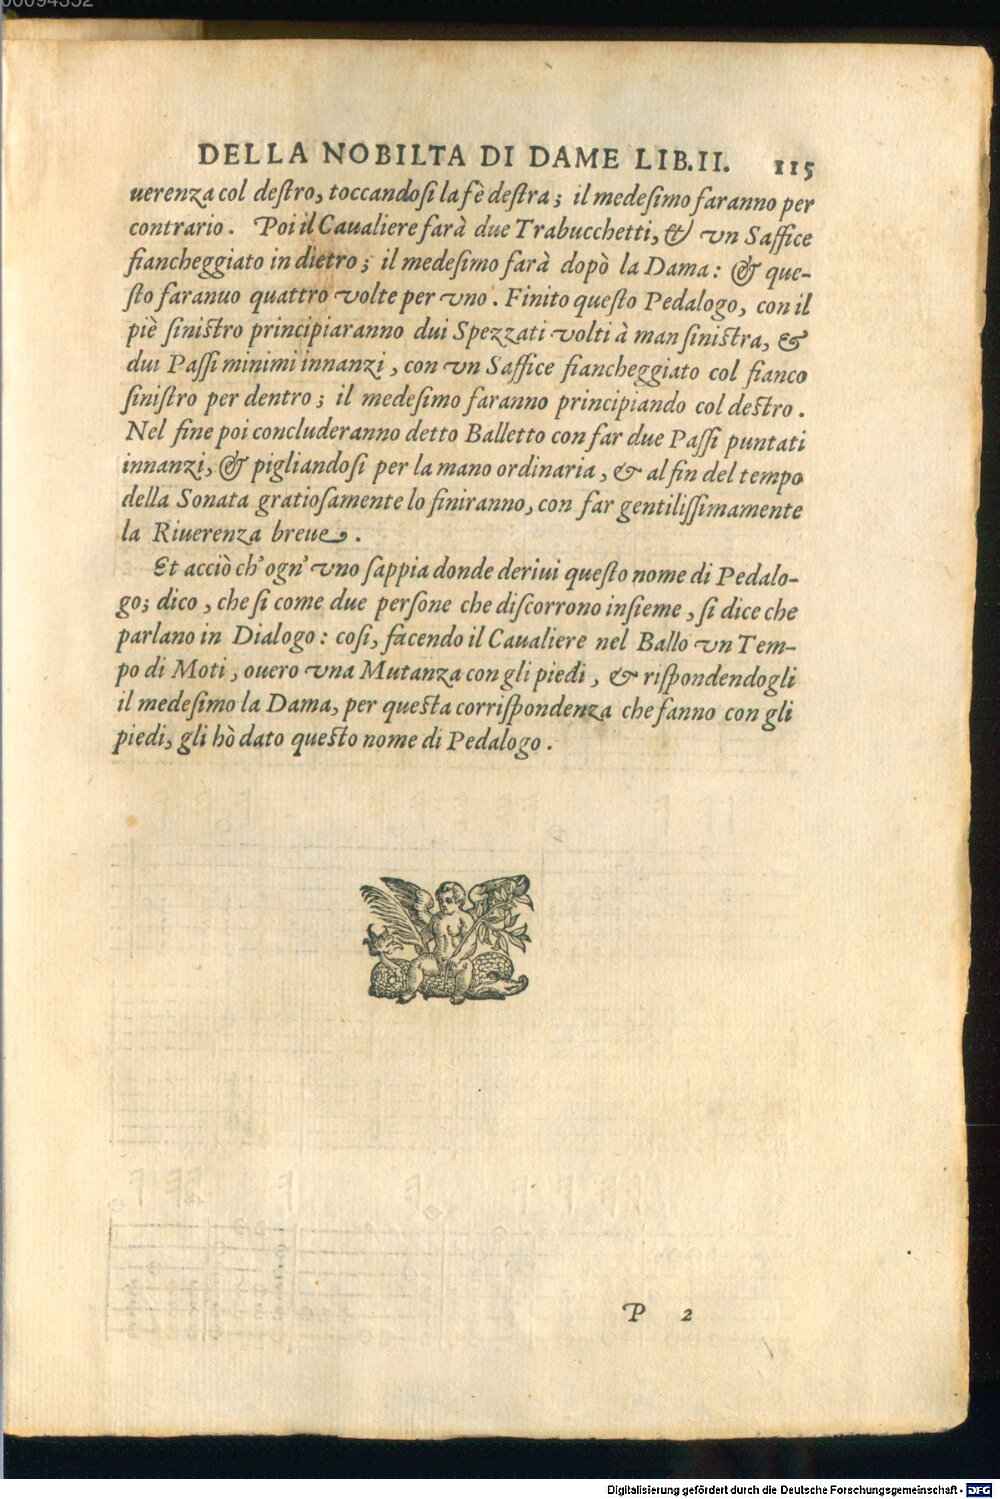 00094352
DELLA NOBILTA DI DAME LIB.II. 115
uerenza col deſtro, toccandoſi la fè deſtra; il medeſimo faranno per
contrario. Poi il Caualiere farà due Trabucchetti, & vn Saffice
fiancheggiato in dietro; il medeſimo farà dopò la Dama: & que-
ſto faranuo quattro volte per vno. Finito queſto Pedalogo, con il
piè ſiniſtro principiaranno dui Spezzati volti à man ſiniſtra, &
dui Paſſi minimi innanzi, con vn Saffice fiancheggiato col fianco
ſiniſtro per dentro; il medeſimo faranno principiando col deſtro.
Nel fine poi concluderanno detto Balletto con far due Paſſi puntati
innanzi, & pigliandoſi per la mano ordinaria, & al fin del tempo
della Sonata gratioſamente lo finiranno, con far gentiliſſimamente
la Riuerenza breue.
Et acciò ch'ogn' vno ſappia donde deriui queſto nome di Pedalo-
go; dico, che ſi come due perſone che diſcorrono inſieme, ſi dice che
parlano in Dialogo: coſi, facendo il Caualiere nel Ballo vn Tem-
po di Moti, ouero vna Mutanza con gli piedi, & riſpondendogli
il medeſimo la Dama, per queſta corriſpondenza che fanno con gli
piedi, gli hò dato queſto nome di Pedalogo.
P 2
Digitalisierung gefördert durch die Deutsche Forschungsgemeinschaft - DFG